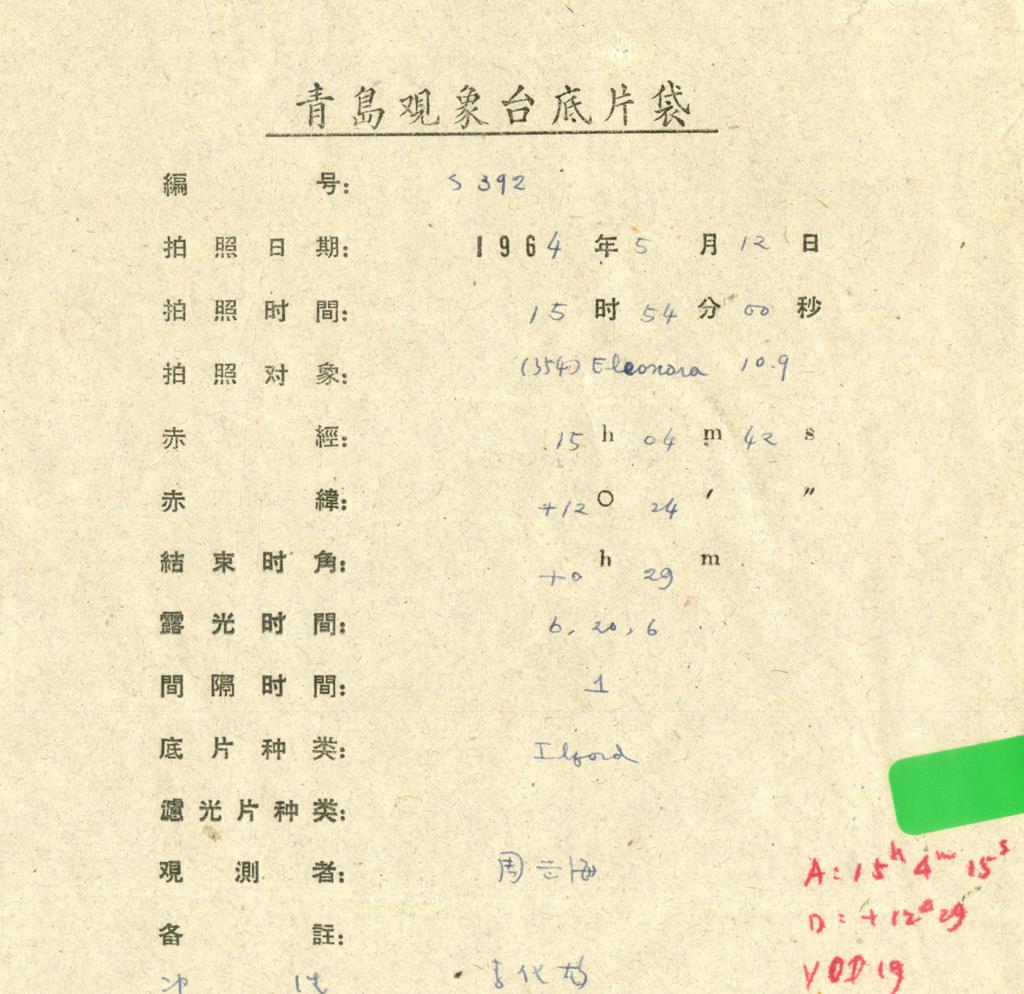 青島观象台底片袋
編 号： S 392
拍照日期： 1964 年 5 月 12 日
拍照时間： 15 时 54 分 00 秒
拍照对象： (354) Eleonora 10.9
赤 經： 15 h 04 m 42 s
赤 緯： +12 ○ 24 ′ ″
結束时角： +0 h 29 m
露光时間： 6, 20, 6
間隔时間： 1
底片种类： Ilford
濾光片种类：
观測者： 周 海
备 註：
A: 15h 4m 15s
D: +12° 29